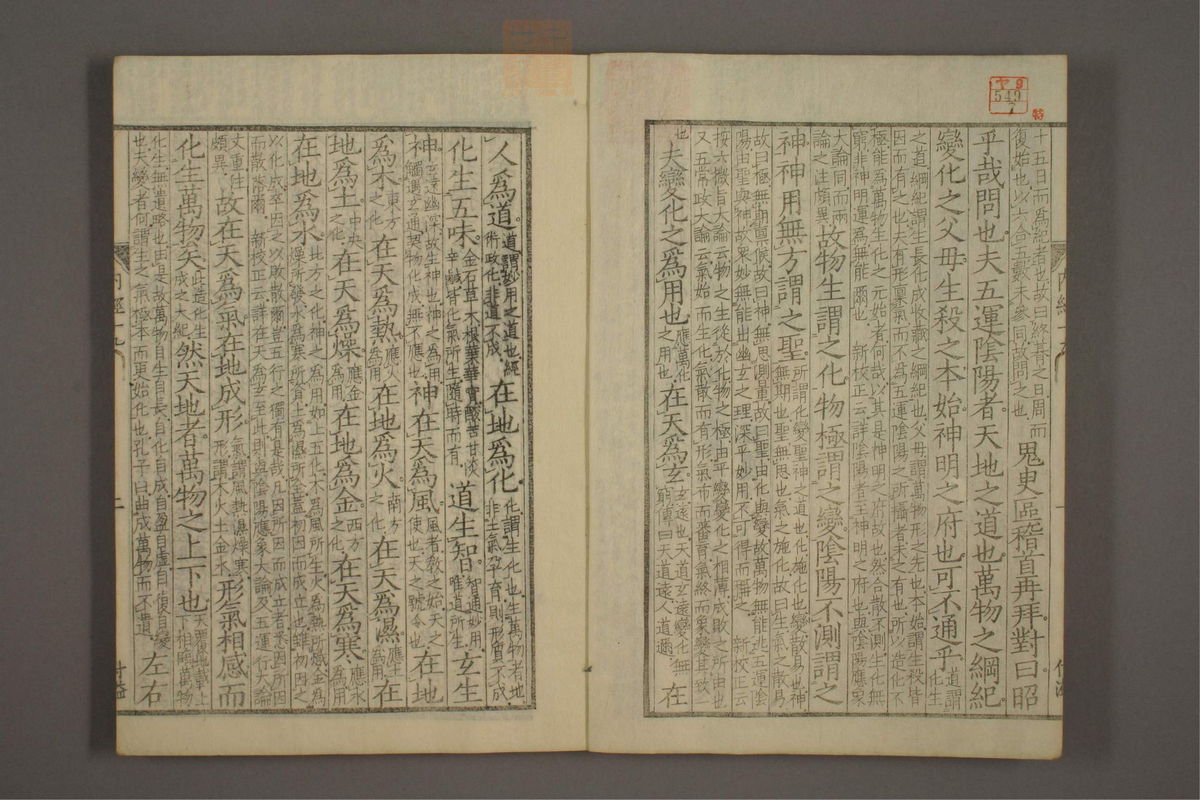 十五日而爲紀者也故曰終朞之日周而復始也以六合五數未參同故問之也鬼臾區稽首再拜對曰昭
乎哉問也夫五運陰陽者天地之道也萬物之綱紀
變化之父母生殺之本始神明之府也可不通乎道謂化生
之道綱紀謂生長化成收藏之綱紀也父母謂萬物形之先也本始謂生殺皆因而有之也夫有形稟氣而不爲五運陰陽之所攝者未之有也所以造化不
極能爲萬物生化之元始者何哉以其是神明之府故也然合散不測生化無窮非神明運爲無能爾也 新校正云詳陰陽者至神明之府也與陰陽應象
大論同而兩論之注頗異故物生謂之化物極謂之變陰陽不測謂之
神神用無方謂之聖所謂化變聖神之道也化施化也變散易也神無期也聖無思也氣之施化故曰生氣之散易
故曰極無期稟候故曰神無思測量故曰聖由化與變故萬物無能逃五運陰陽由聖與神故衆妙無能出幽玄之理深乎妙用不可得而稱之 新校正云
按六微旨大論云物之生從於化物之極由乎變變化之相薄成敗之所由也又五常政大論云氣始而生化氣散而有形氣布而蕃育氣終而象變其致一
也夫變化之爲用也應萬化之用也在天爲玄玄遠也天道玄遠變化無窮傳曰天道遠人道邇在
人爲道道謂妙用之道也經術政化非道不成在地爲化化謂生化也生萬物者地非土氣孕育則形質不成
化生五味金石草木根葉華實酸苦甘淡辛鹹皆化氣所生隨時而有道生智智通妙用唯道所生玄生
神玄遠幽深故生神也神之爲用觸遇玄通契物化成無不應也神在天爲風風者教之始天之使也天之號令也在地
爲木東方之化在天爲熱應火爲用在地爲火南方之化在天爲濕應土爲用在
地爲土中央之化在天爲燥應金爲用在地爲金西方之化在天爲寒應水爲用
在地爲水北方之化神之爲用如上五化木爲風所生火爲熱所熾金爲燥所發水爲寒所資土爲濕所全蓋初因而成立也雖初因之
以化成卒因之以敗散爾豈五行之獨有是哉凡因所因而成立者悉因所因而散落爾 新校正云詳在天爲玄至此則與陰陽應象大論及五運行大論
文重注頗異故在天爲氣在地成形氣謂風熱濕燥寒形謂木火土金水形氣相感而
化生萬物矣此造化生成之大紀然天地者萬物之上下也天覆地載上下相臨萬物
化生無遺略也由是故萬物自生自長自化自成自盈自虛自復自變也夫變者何謂生之氣極本而更始化也孔子曰曲成萬物而不遺左右
ヤ9
549
7
特